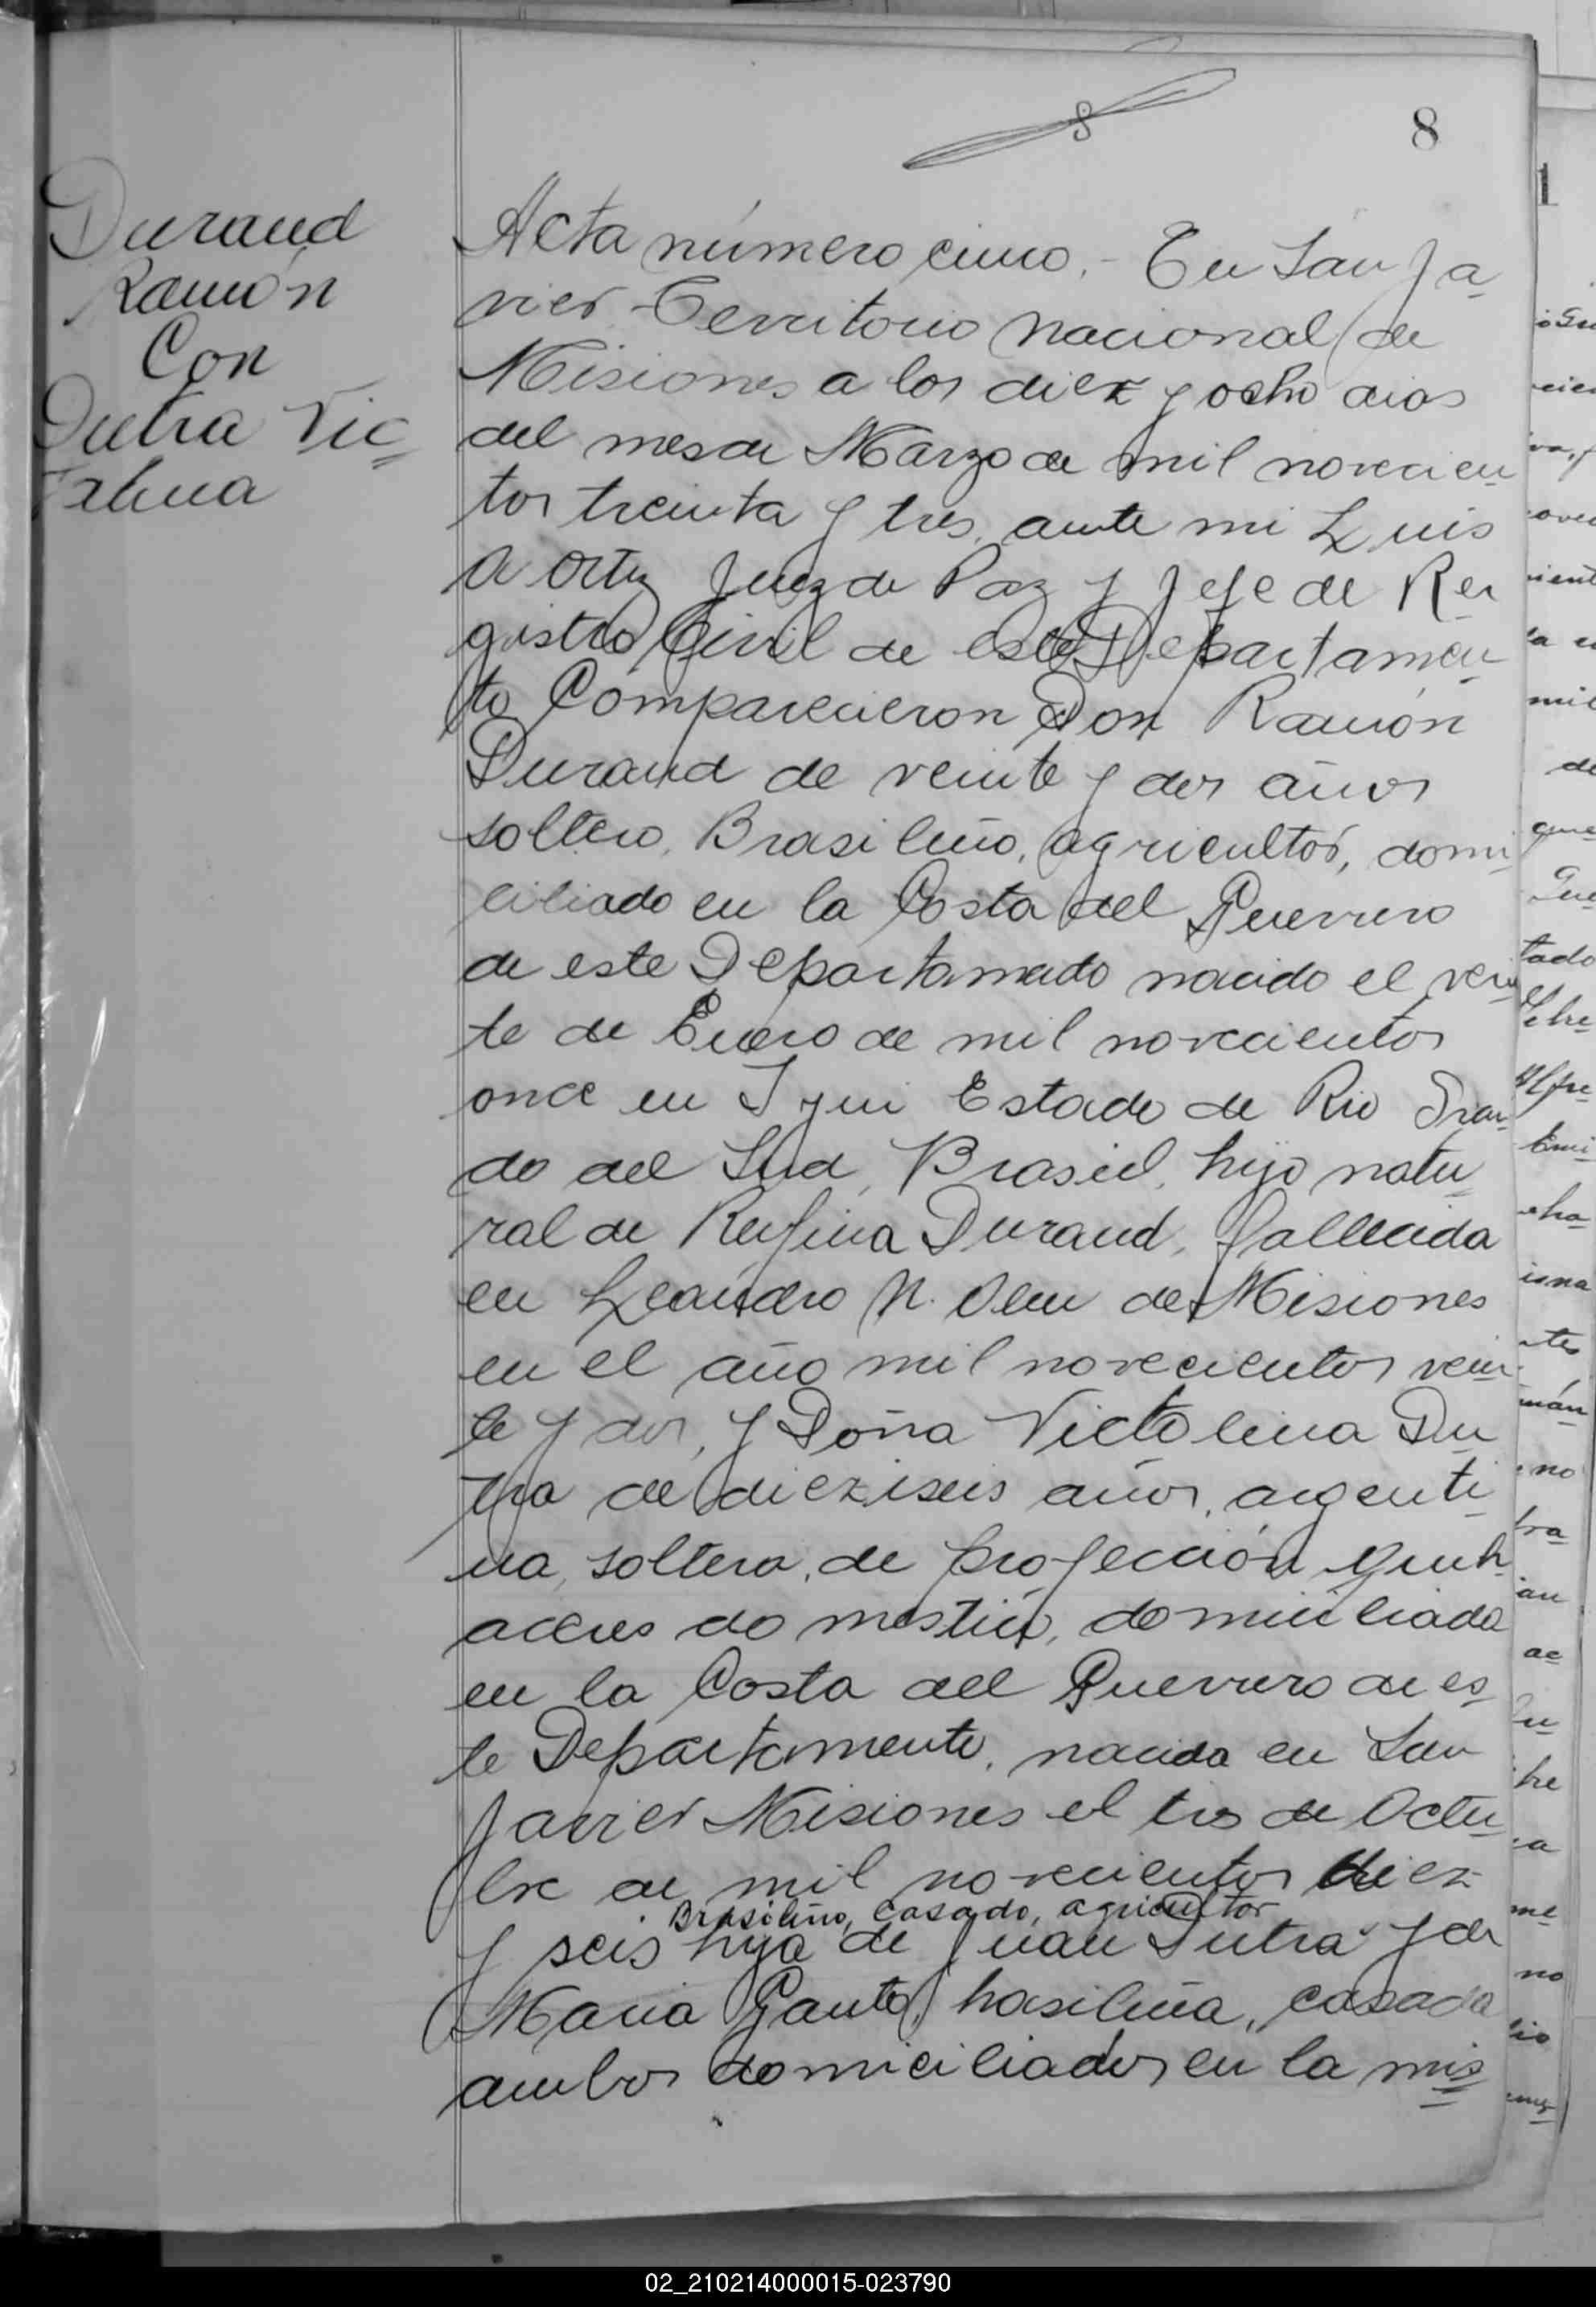 8
8
Durand
Ramón
Con
Dutra Vic
talina
Acta número cinco.- En San Ja
vier Territorio Nacional de
Misiones a los diez y ocho dias
del mes de Marzo de mil novecien
tos treinta y tres, ante mi Luis
A Ortiz Juez de Paz y Jefe de Re
gistro Civil de este Departamen
to Comparecieron Don Ramón
Durand de veinte y dos años
soltero, Brasileño, agricultor, domi
ciliado en la Costa del Guerrero
de este Departamento nacido el vein
te de Enero de mil novecientos
once en Iyui Estado de Rio Gran
do del Sud, Brasil, hijo natu
ral de Rufina Durand, fallecida
en Leandro N. Alem de Misiones
en el año mil novecientos vein
te y dos, y Doña Victolina Du
tra de dieziseis años, argenti
na, soltera, de profección queh
aceres domestico, domiciliada
en la Costa del Guerrero de es
te Departamento, nacida en San
Javier Misiones el tres de Octu
bre de mil novecientos diez
Brasileño, casado, agricultor
y seis hija de Juan Dutra y de
Maria Gauto, brasileña, casada
ambos domiciliados en la mis
02_210214000015-023790